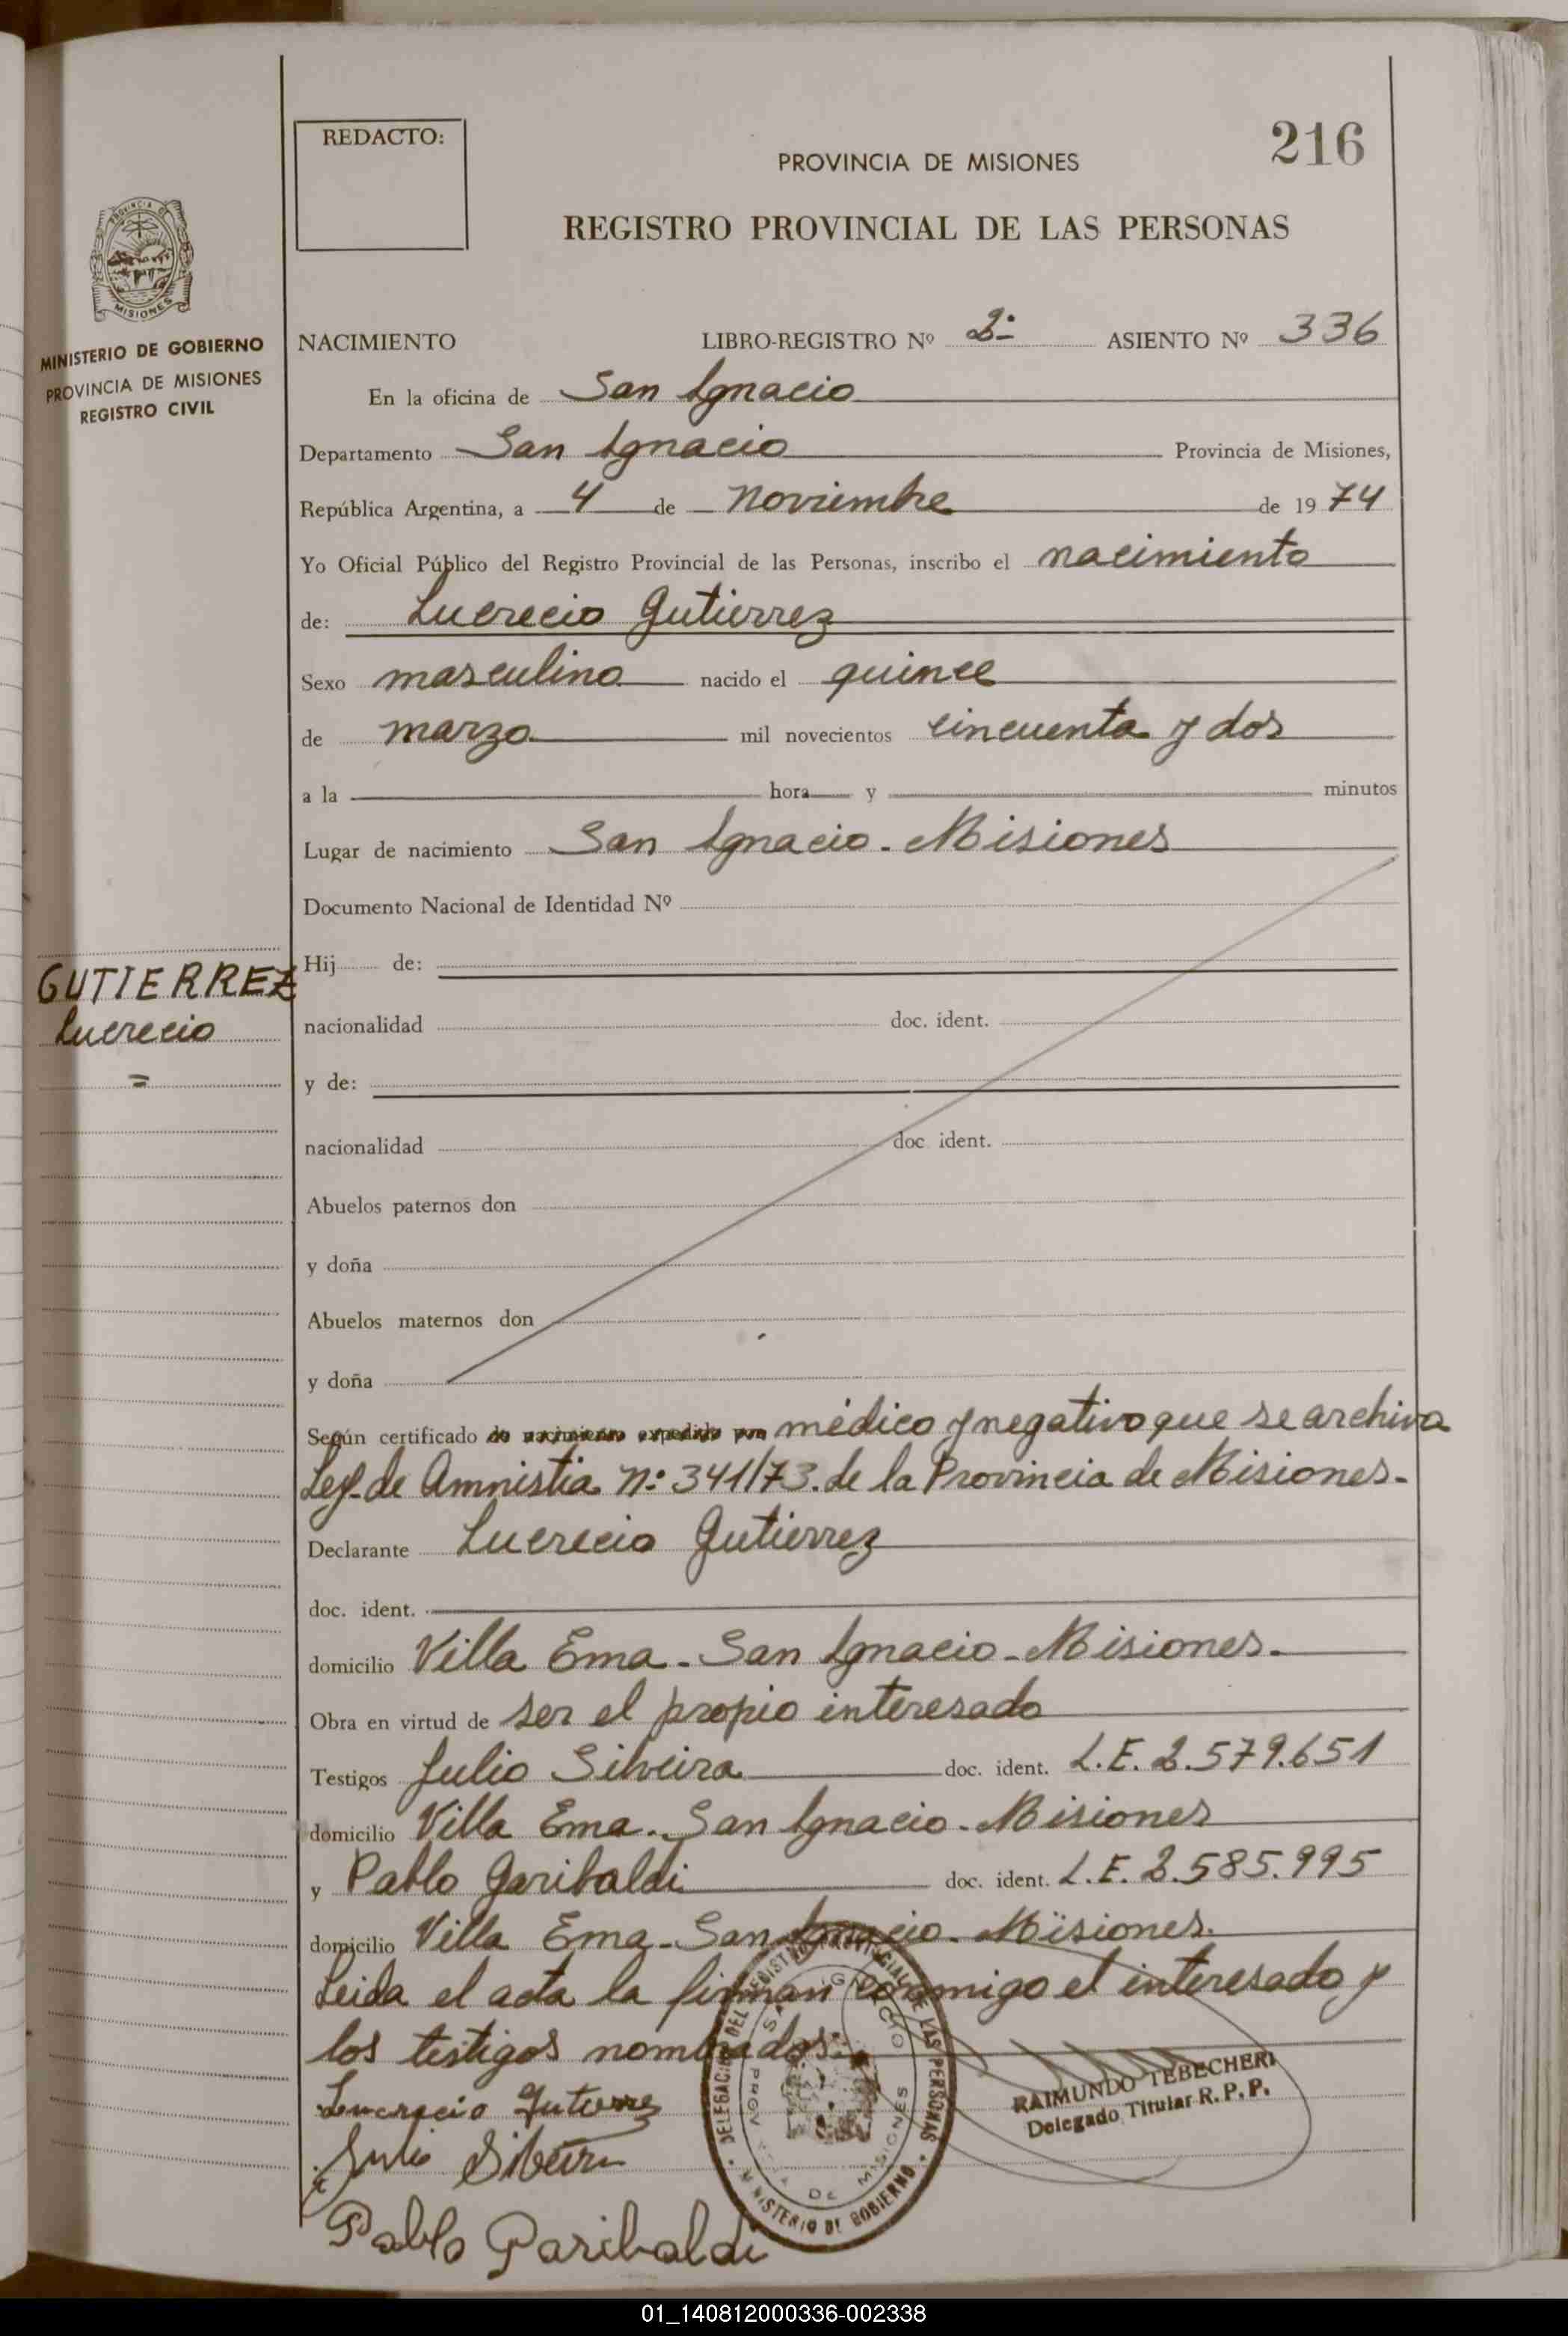 REDACTO:
216
PROVINCIA DE MISIONES
REGISTRO PROVINCIAL DE LAS PERSONAS
PROVINCIA DE
MISIONES
MINISTERIO DE GOBIERNO
PROVINCIA DE MISIONES
REGISTRO CIVIL
NACIMIENTO LIBRO-REGISTRO Nº 2º ASIENTO Nº 336
En la oficina de San Ignacio
Departamento San Ignacio Provincia de Misiones,
República Argentina, a 4 de noviembre de 1974
Yo Oficial Público del Registro Provincial de las Personas, inscribo el nacimiento
de: Lucrecio Gutierrez
Sexo masculino nacido el quince
de marzo mil novecientos cincuenta y dos
a la hora y minutos
Lugar de nacimiento San Ignacio - Misiones
Documento Nacional de Identidad Nº
Hij de:
GUTIERREZ
Lucrecio
=
nacionalidad doc. ident.
y de:
nacionalidad doc. ident.
Abuelos paternos don
y doña
Abuelos maternos don
y doña
Según certificado de nacimiento expedido por médico y negativo que se archiva
Ley de Amnistia Nº 341/73. de la Provincia de Misiones.
Declarante Lucrecio Gutierrez
doc. ident.
domicilio Villa Ema - San Ignacio - Misiones.
Obra en virtud de ser el propio interesado
Testigos Julio Silveira doc. ident. L.E. 2.579.651
domicilio Villa Ema - San Ignacio - Misiones
y Pablo Garibaldi doc. ident. L.E. 2.585.995
domicilio Villa Ema - San Ignacio - Misiones.
Leida el acta la firman conmigo el interesado y
los testigos nombrados:
DELEGACION DEL REGISTRO PROVINCIAL DE LAS PERSONAS
S. IGNACIO
PROVINCIA DE MISIONES
MINISTERIO DE GOBIERNO
RAIMUNDO TEBECHERI
Delegado Titular R. P. P.
Lucrecio Gutierrez
Julio Silveira
Pablo Garibaldi
01_140812000336-002338